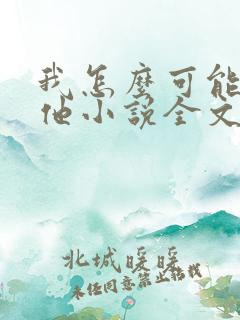 我怎麼可能
他小說全文
北城暖暖
未经同意禁止转载